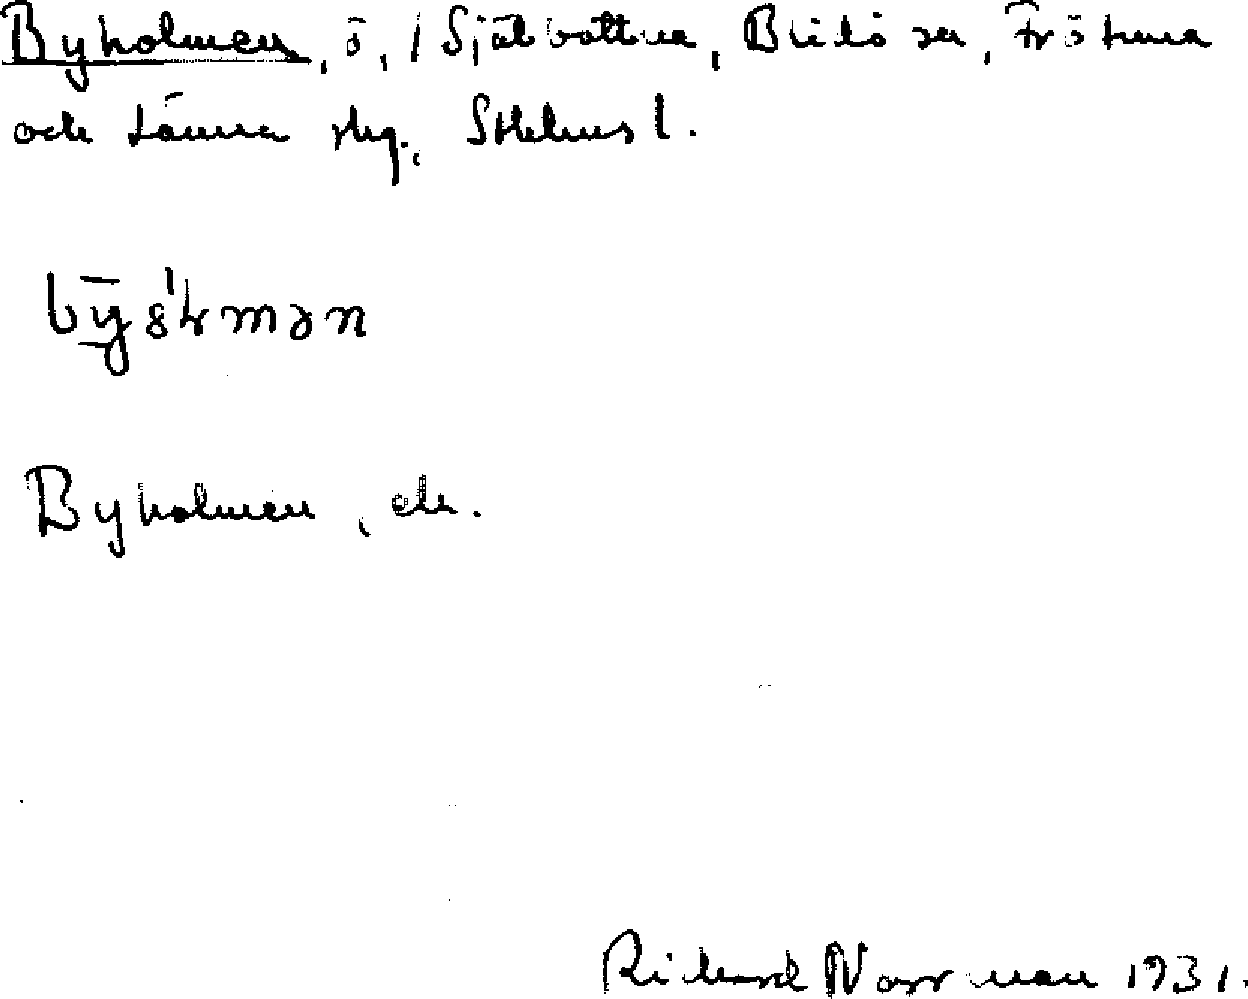 Byholmen, ö, i Själbottna, Bleidö sn, Frötuna
och Länna skg, Sthlms l.
bȳ8'lmən
Byholmen, ek.
Richard Norrman 1931.